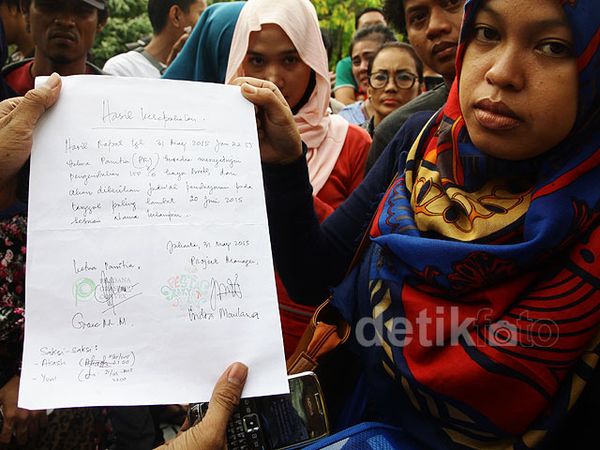 Hasil Kesepakatan.
Hasil Rapat tgl 31 May 2015 Jam 22
Ketua Panitia (PRJ) bersedia mengadakan
pengembalian 100 % biaya booth, dan
akan diberikan jadwal pembayaran pada
tanggal paling lambat 20 Juni 2015
sesuai nama terlampir.
Jakarta, 31 May 2015
Ketua Panitia, Project Manager,
Grace M. M. Indra Maulana
Saksi-saksi :
- Aisah
- Yuni
detikfoto